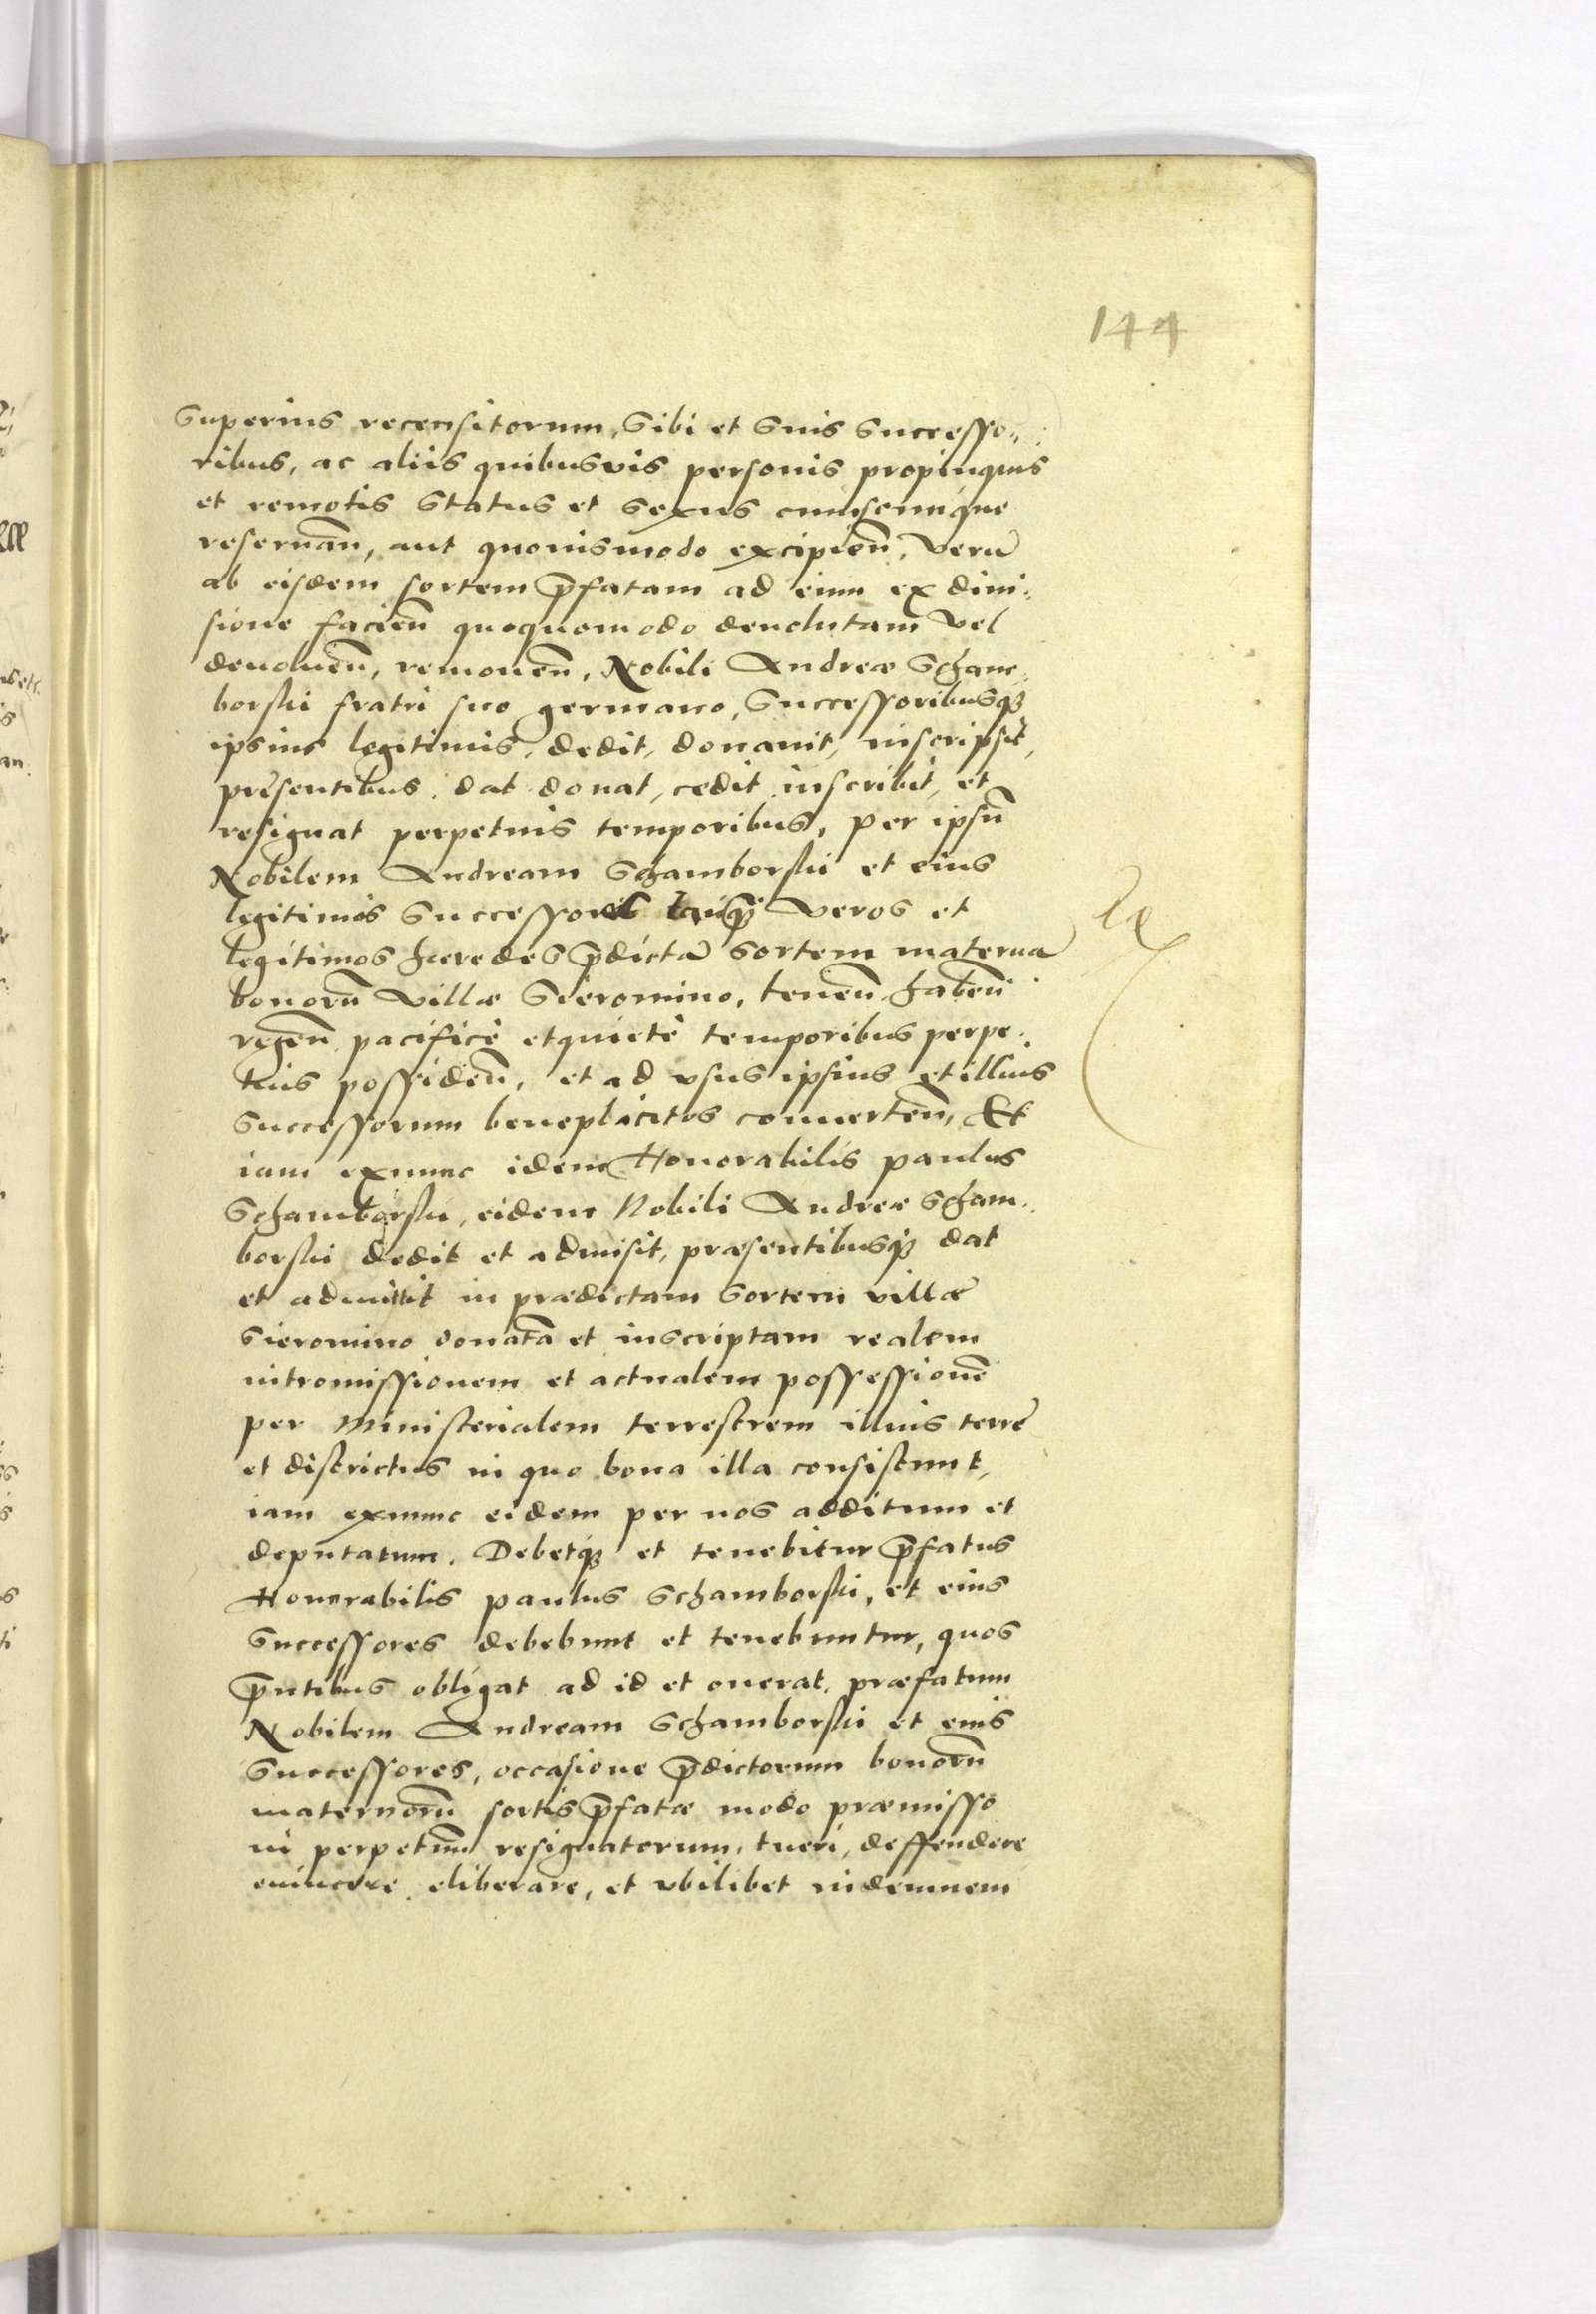 144
superius recensitorum, sibi et suis successo„
ribus, ac aliis quibusvis personis propinquis
et remotis status et sexus cuiuscunque
reseruañ, aut quouismodo excipieñ, verũ
ab eisdem sortem p̃fatam ad eum ex diui„
sione facieñ quoquomodo deuolutam vel
deuolueñ, remoueñ, Nobili Andreæ Scham„
borski fratri suo germano, successoribusq3
ipsius legitimis, dedit, donauit, inscripsit,
presentibus dat donat, cedit inscribit, et
resignat perpetuis temporibus, per ipsũ
Nobilem Andream Schamborski et eius
legitimos successores tanq̃ veros et
legitimos hæredes p̃dictã sortem maternã
bonorũ villæ Sieromino, teneñ habeñ
regeñ pacificè et quietè temporibus perpe„
tuis possideñ, et ad vsus ipsius et illius
successorum beneplacitos conuerteñ, Et
iam exnunc idem Honorabilis paulus
Schamborski, eidem Nobili Andreæ Scham„
borski dedit et admisit, præsentibusq3 dat
et admittit in prædictam sortem villæ
Sieromino donatã et inscriptam realem
intromissionem et actualem possessionẽ
per Ministerialem terrestrem illius terre
et districtus in quo bona illa consistunt,
iam exnunc eidem per nos additum et
deputatum. Debetq3 et tenebitur p̃fatus
Honorabilis paulus Schamborski, et eius
successores debebunt et tenebuntur, quos
p̃ntibus obligat ad id et onerat, præfatum
Nobilem Andream Schamborski et eius
successores, occasione p̃dictorum bonorũ
maternorũ sortis p̃fatæ modo præmisso
in perpetuũ resignatorum, tueri, deffendere
euincere eliberare, et vbilibet indemnem